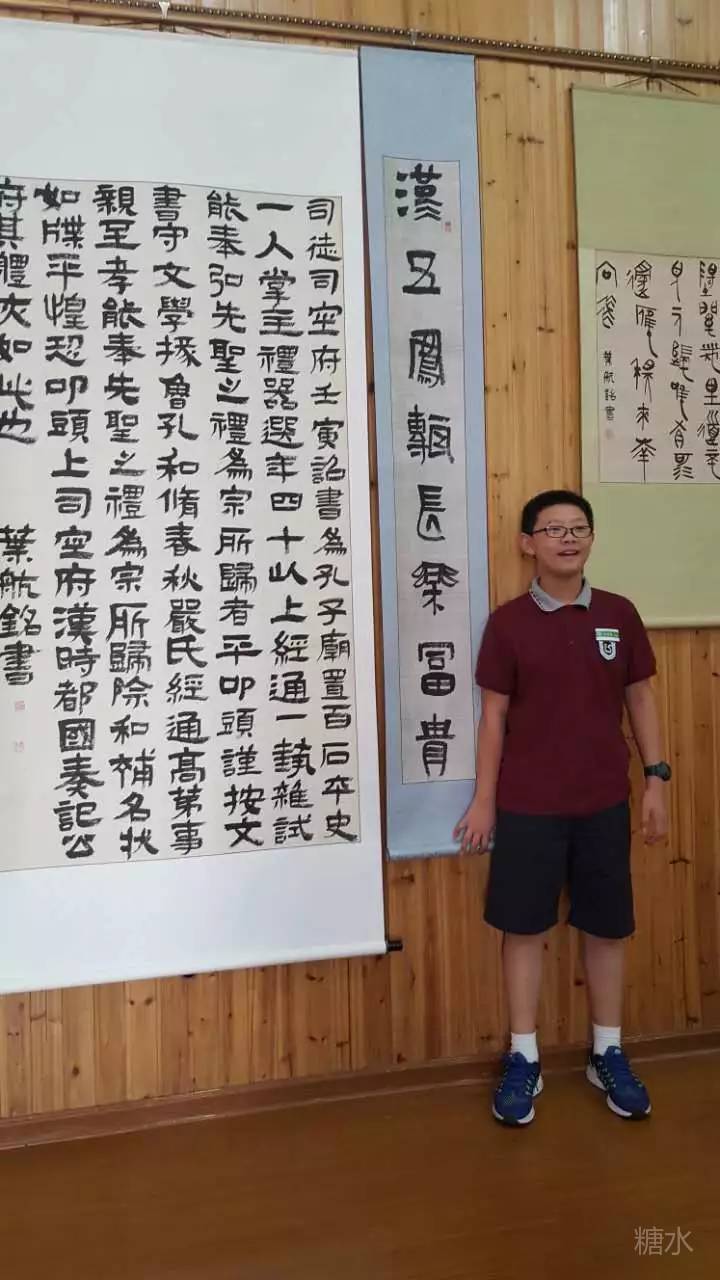 葉航銘書
漢五鳳甎長樂富貴
司徒司空府壬寅詔書為孔子廟置百石卒史
一人掌主禮器選年四十以上經通一埶雜試
能奉弘先聖之禮為宗所歸者平叩頭謹按文
書守文學掾魯孔和脩春秋嚴氏經通高第事
親至孝能奉先聖之禮為宗所歸除和補名狀
如牒平惶恐叩頭上司空府漢時都國奏記公
府其體次如此也
葉航銘書
糖水